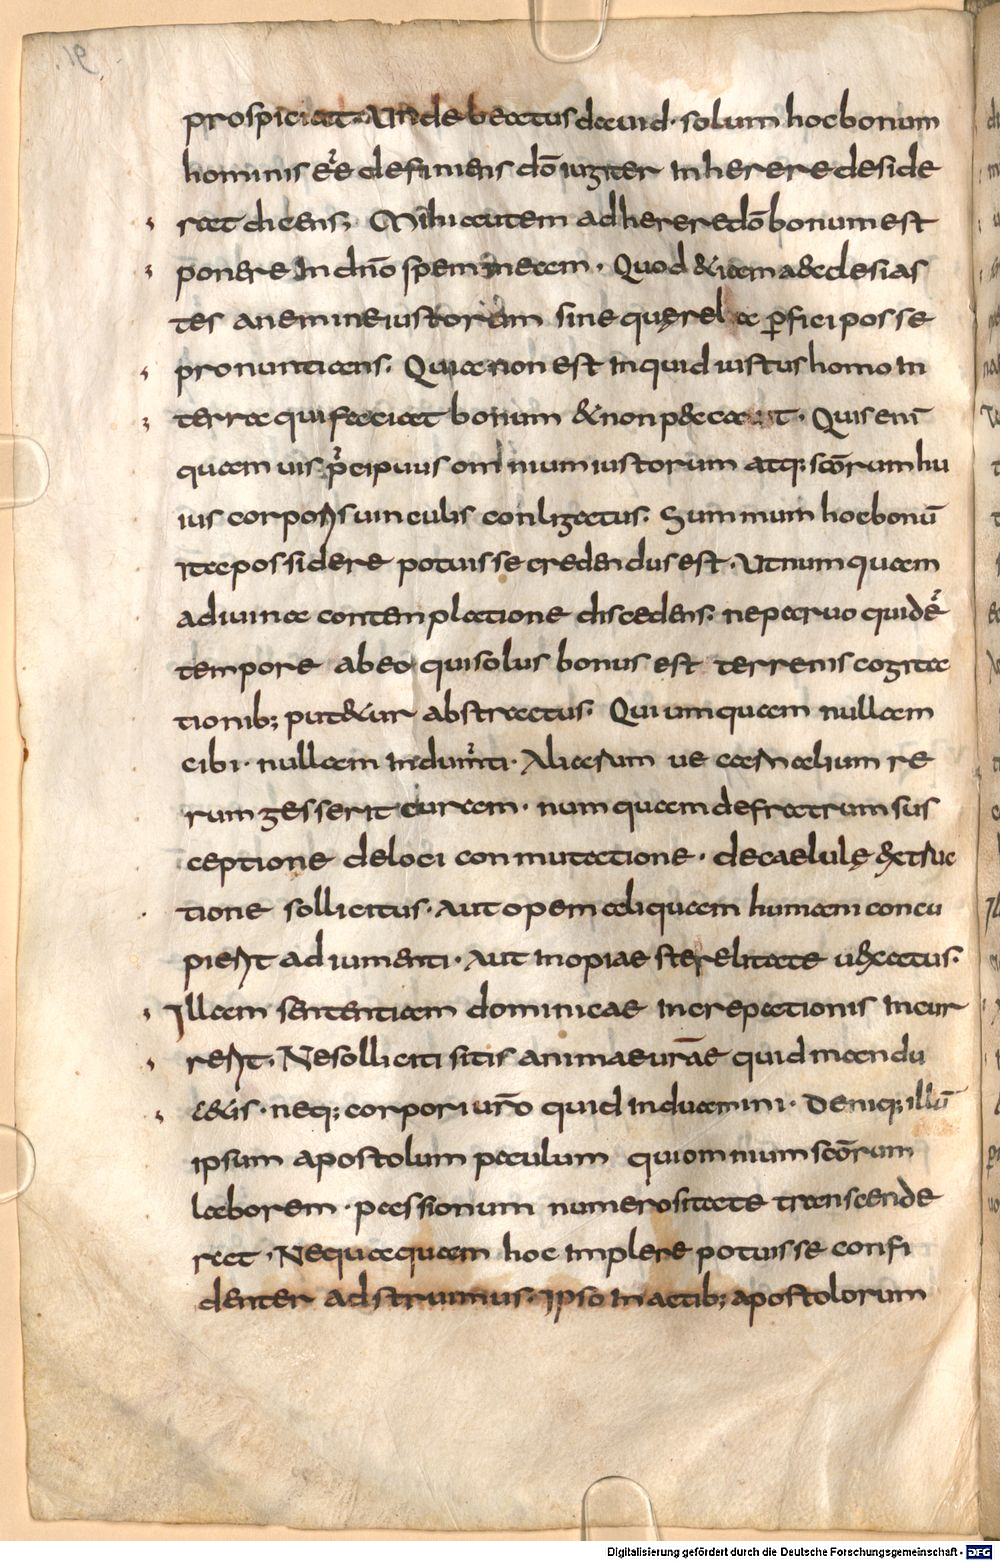 prospiciat. Unde beatus dauid. solum hoc bonum
hominis eēe definiens dō iugiter inherere deside
rat dicens; Mihi autem adherere dō bonum est
ponere in dn̄o spem meam. Quod & iam a&clesias
tes a nemine iustorum sine querela ꝑfici posse
pronuntians. Quia non est inquid iustus homo in
terra qui faciat bonum & non p&cauit. Quis eni
quam uis p̄cipuus omnium iustorum atq; scōrum hu
ius corporis uinculis conligatus. Summum hoc bonū
ita possidere potuisse credendus est. Ut numquam
a diuina contemplatione discedens. ne paruo quidē
tempore ab eo qui solus bonus est terrenis cogita
tionib; put&ur abstractus. Qui umquam nullam
cibi. nullam indumti. Aliarum ue carnalium re
rum gesserit curam. numquam de fratrum sus
ceptione de loci conmutatione. de caelulę extruc
tione sollicitus. Aut opem aliquam humani concu
pierit adiumenti. Aut inopiae sterelitate uexatus.
Illam sententiam dominicae increpationis incur
rerit. Ne solliciti sitis animae urāe quid mandu
c&is. neq; corpori urō quid induamini. Deniq; illū
ipsum apostolum paulum qui omnium scōrum
laborem. passionum numerositate transcende
rat. Nequaquam hoc implere potuisse confi
denter adstruimus. Ipso in actib; apostolorum
Digitalisierung gefördert durch die Deutsche Forschungsgemeinschaft - DFG